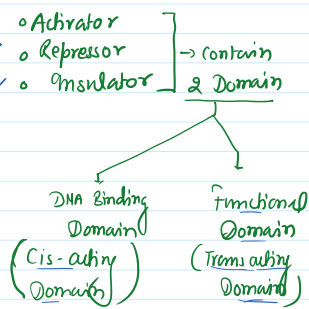 o Activator
o Repressor
o Insulator
→ Contain
2 Domain
DNA Binding
Domain
(Cis-acting
Domain)
Functional
Domain
(Trans acting
Domain)